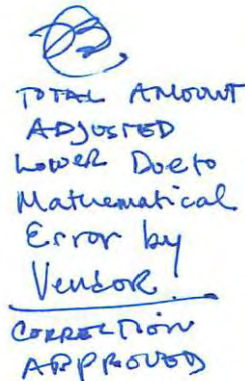 TOTAL AMOUNT
ADJUSTED
LOWER Due to
Mathematical
Error by
Vendor.
CORRECTION
APPROVED